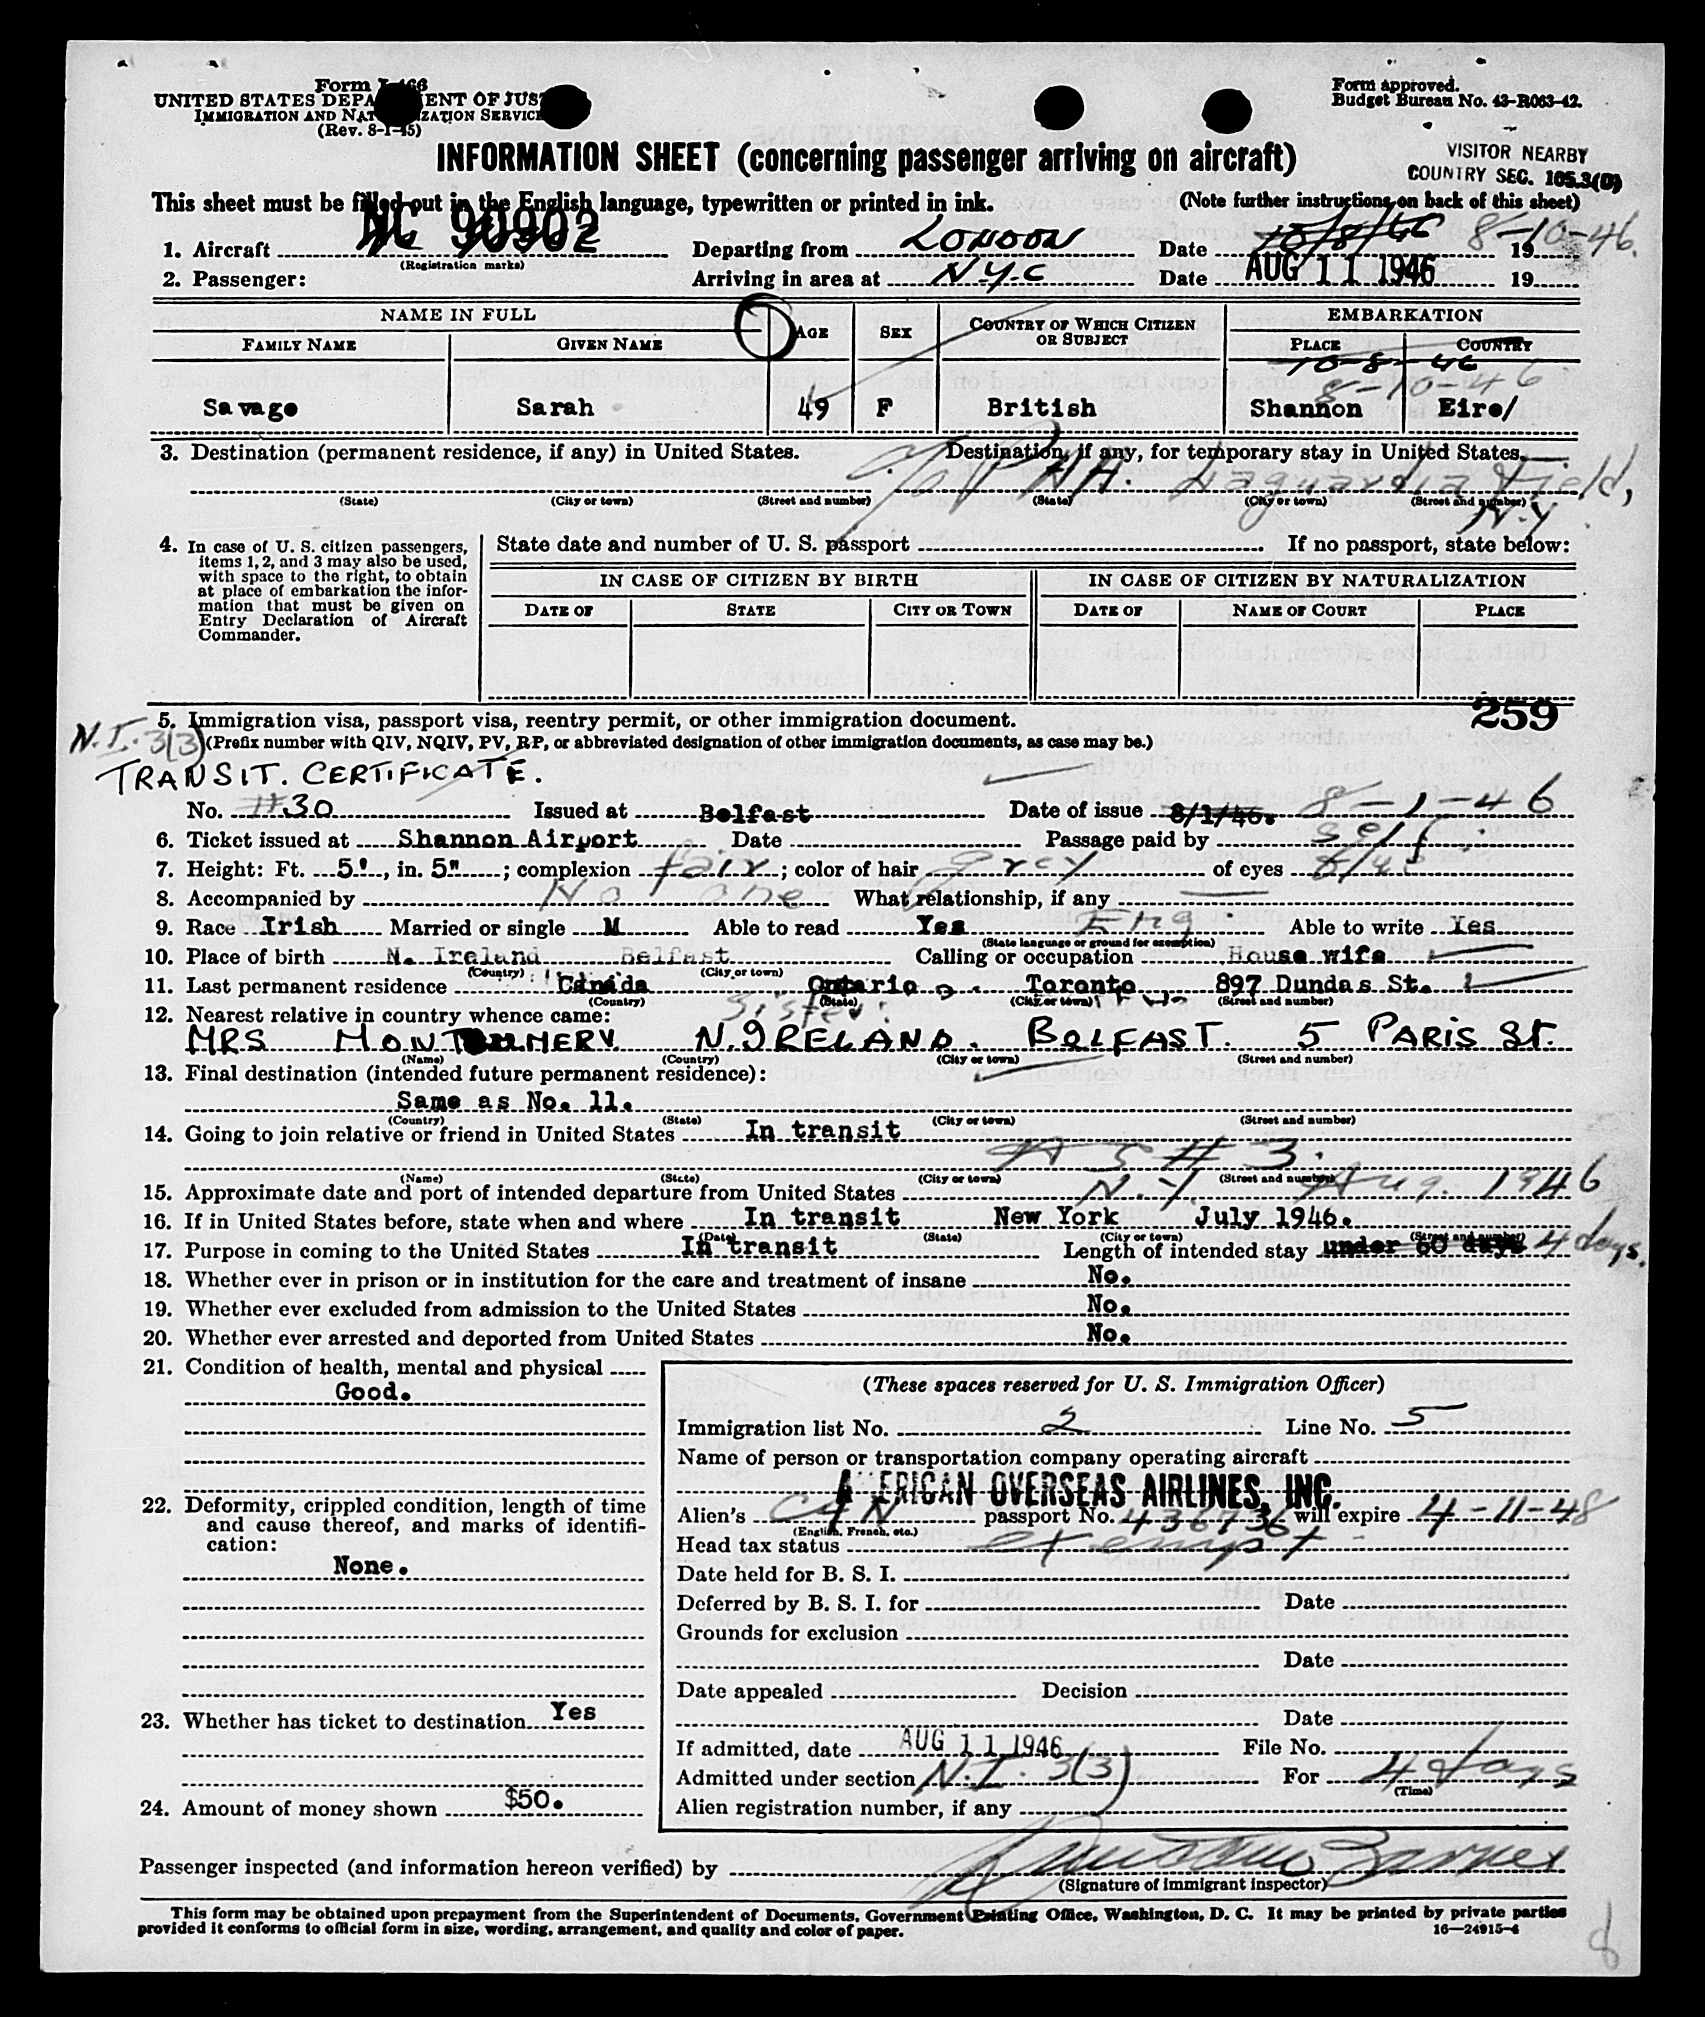 Form I-466
UNITED STATES DEPARTMENT OF JUSTICE
IMMIGRATION AND NATURALIZATION SERVICE
(Rev. 8-1-45)
Form approved.
Budget Bureau No. 43-R063-42.
INFORMATION SHEET (concerning passenger arriving on aircraft)
VISITOR NEARBY
COUNTRY SEC. 105.3(D)
This sheet must be filled out in the English language, typewritten or printed in ink. (Note further instructions on back of this sheet)
1. Aircraft NC 90902 Departing from LONDON Date 10/8/46 8-10-46. 19
(Registration marks)
2. Passenger: Arriving in area at N.Y.C Date AUG 11 1946 19
NAME IN FULL AGE SEX COUNTRY OF WHICH CITIZEN OR SUBJECT EMBARKATION
FAMILY NAME GIVEN NAME PLACE COUNTRY
10-8-46
8-10-46
Savage Sarah 49 F British Shannon Eire/
3. Destination (permanent residence, if any) in United States. Destination, if any, for temporary stay in United States.
c/o P.A.A. Laguardia Field,
(State) (City or town) (Street and number) (State) (City or town) (Street and number)
N.Y.
4. In case of U. S. citizen passengers, items 1, 2, and 3 may also be used, with space to the right, to obtain at place of embarkation the information that must be given on Entry Declaration of Aircraft Commander.
State date and number of U. S. passport If no passport, state below:
IN CASE OF CITIZEN BY BIRTH IN CASE OF CITIZEN BY NATURALIZATION
DATE OF STATE CITY OR TOWN DATE OF NAME OF COURT PLACE
259
5. Immigration visa, passport visa, reentry permit, or other immigration document.
N.I. 3(3) (Prefix number with QIV, NQIV, PV, RP, or abbreviated designation of other immigration documents, as case may be.)
TRANSIT. CERTIFICATE.
No. #30 Issued at Belfast Date of issue 8/1/46. 8-1-46
6. Ticket issued at Shannon Airport Date Passage paid by Self.
7. Height: Ft. 5', in. 5"; complexion fair; color of hair grey of eyes blue
8. Accompanied by No one What relationship, if any
9. Race Irish Married or single M Able to read Yes Eng. Able to write Yes
(State language or ground for exemption)
10. Place of birth N. Ireland Belfast Calling or occupation House wife
(Country) (City or town)
11. Last permanent residence Canada Ontario Toronto 897 Dundas St.
(Country) (State) (City or town) (Street and number)
12. Nearest relative in country whence came: Sister:
MRS MONTGOMERY N. IRELAND. BELFAST. 5 PARIS St.
(Name) (Country) (City or town) (Street and number)
13. Final destination (intended future permanent residence):
Same as No. 11.
(Country) (State) (City or town) (Street and number)
14. Going to join relative or friend in United States In transit
AS # 3.
(Name) (State) (City or town) (Street and number)
15. Approximate date and port of intended departure from United States N.Y. Aug. 1946
16. If in United States before, state when and where In transit New York July 1946.
(Date) (State) (City or town) (Street and number)
17. Purpose in coming to the United States In transit Length of intended stay under 60 days 4 days.
18. Whether ever in prison or in institution for the care and treatment of insane No.
19. Whether ever excluded from admission to the United States No.
20. Whether ever arrested and deported from United States No.
21. Condition of health, mental and physical
Good.
22. Deformity, crippled condition, length of time and cause thereof, and marks of identification:
None.
23. Whether has ticket to destination Yes
24. Amount of money shown $50.
(These spaces reserved for U. S. Immigration Officer)
Immigration list No. 2 Line No. 5
Name of person or transportation company operating aircraft
AMERICAN OVERSEAS AIRLINES, INC.
Alien's CAN passport No. 436736 will expire 4-11-48
(English, French, etc.)
Head tax status exempt
Date held for B. S. I.
Deferred by B. S. I. for Date
Grounds for exclusion
Date
Date appealed Decision
Date
If admitted, date AUG 11 1946 File No.
Admitted under section N.I. 3(3) For 4 days
(Time)
Alien registration number, if any
Passenger inspected (and information hereon verified) by
(Signature of immigrant inspector)
This form may be obtained upon prepayment from the Superintendent of Documents, Government Printing Office, Washington, D. C. It may be printed by private parties
provided it conforms to official form in size, wording, arrangement, and quality and color of paper. 16—24915-4
8